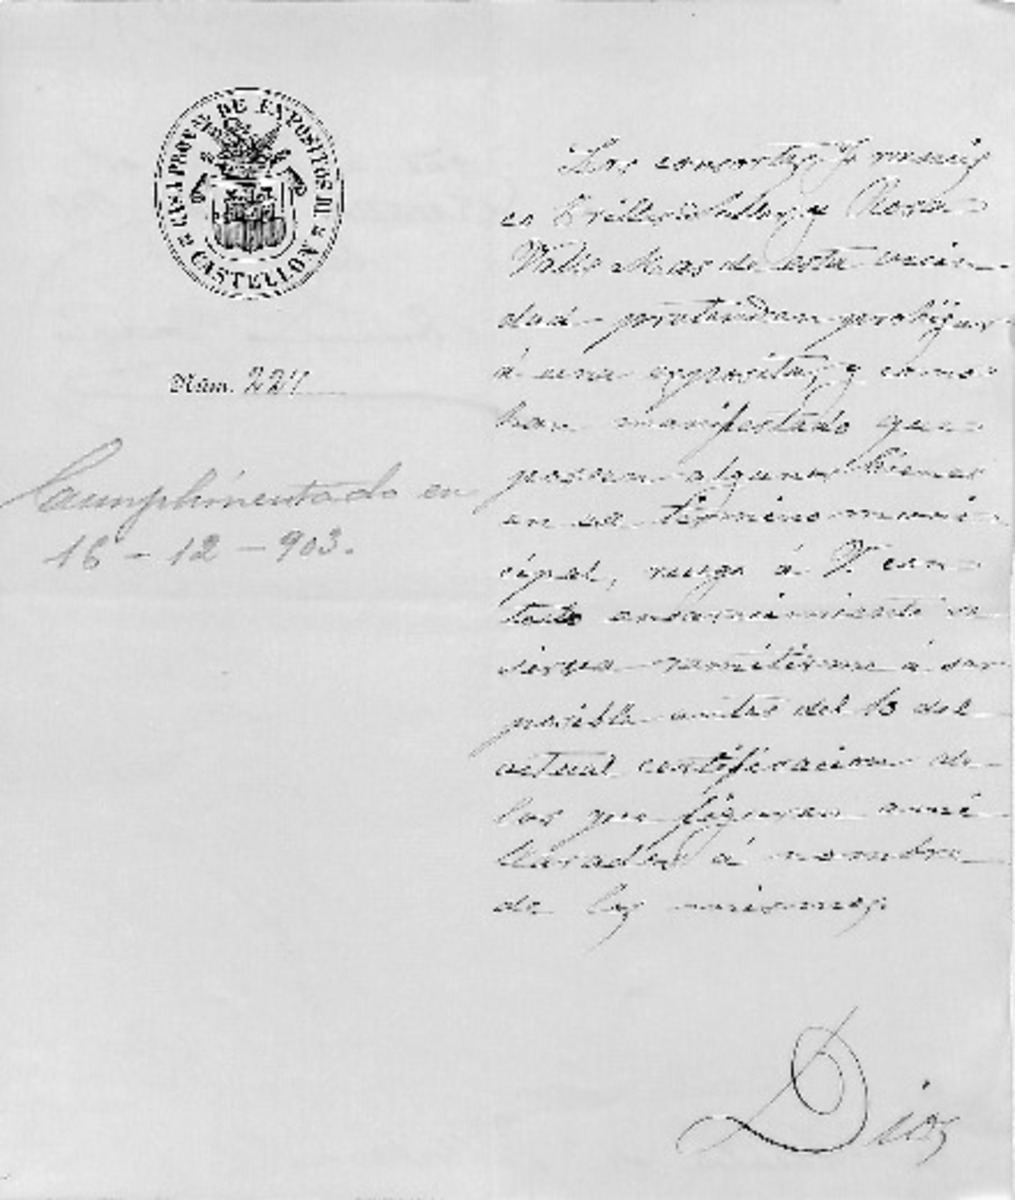 CASA PROVAL DE EXPOSITOS DE
CASTELLON
Núm. 224
Cumplimentado en
16 - 12 - 903.
Los consortes
co Trilles y Rosa
Valls Mas de esta vecin-
dad pretenden prohijar
á una exposita, y como
han manifestado que
poseen algunos bienes
en ese término muni-
cipal, ruego á V. con
todo encarecimiento se
sirva remitirme á ser
posible antes del 13 del
actual certificacion de
los que figuran ami-
llarados á nombre
de los mismos.
Dios